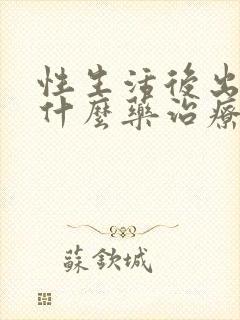 性生活後出
什麼藥治療
蘇欽城